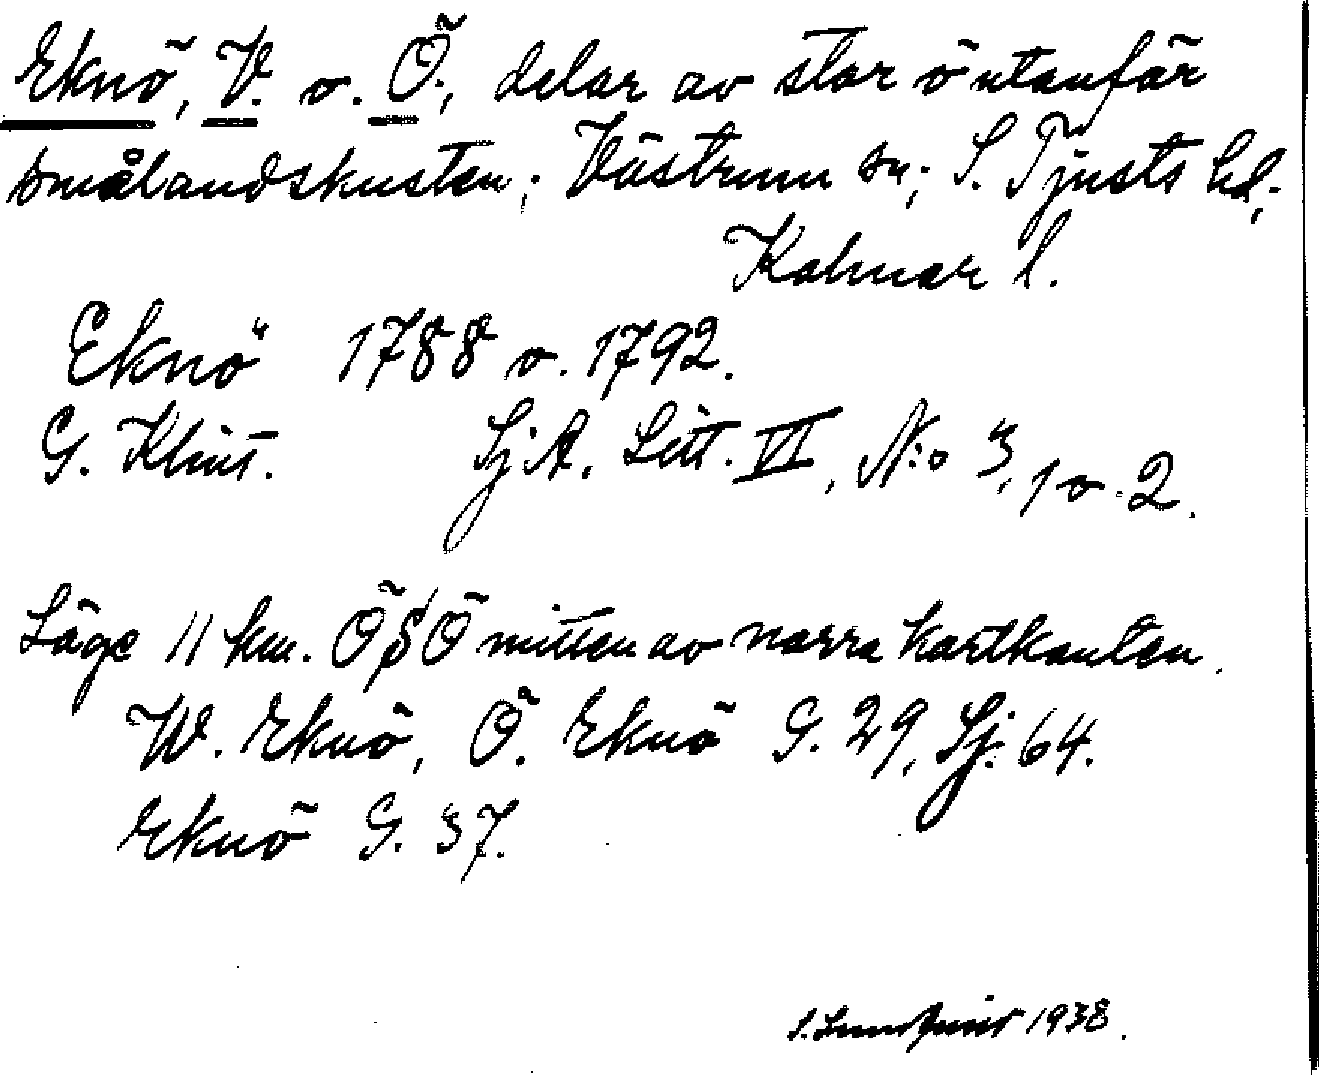 Eknö, V. o. Ö., delar av stor ö utanför
smålandskusten; Västrum sn; S. Tjusts hd;
Kalmar l.
Eknö 1788 o. 1792.
G. Klint. Sj.A. Litt. VI, N:o 3, 1 o. 2.
Läge 11 km. ÖSÖ mitten av norra kartkanten.
W. Eknö, Ö. Eknö G. 29, Sj. 64.
Eknö G. 37.
S. Lundquist 1938.